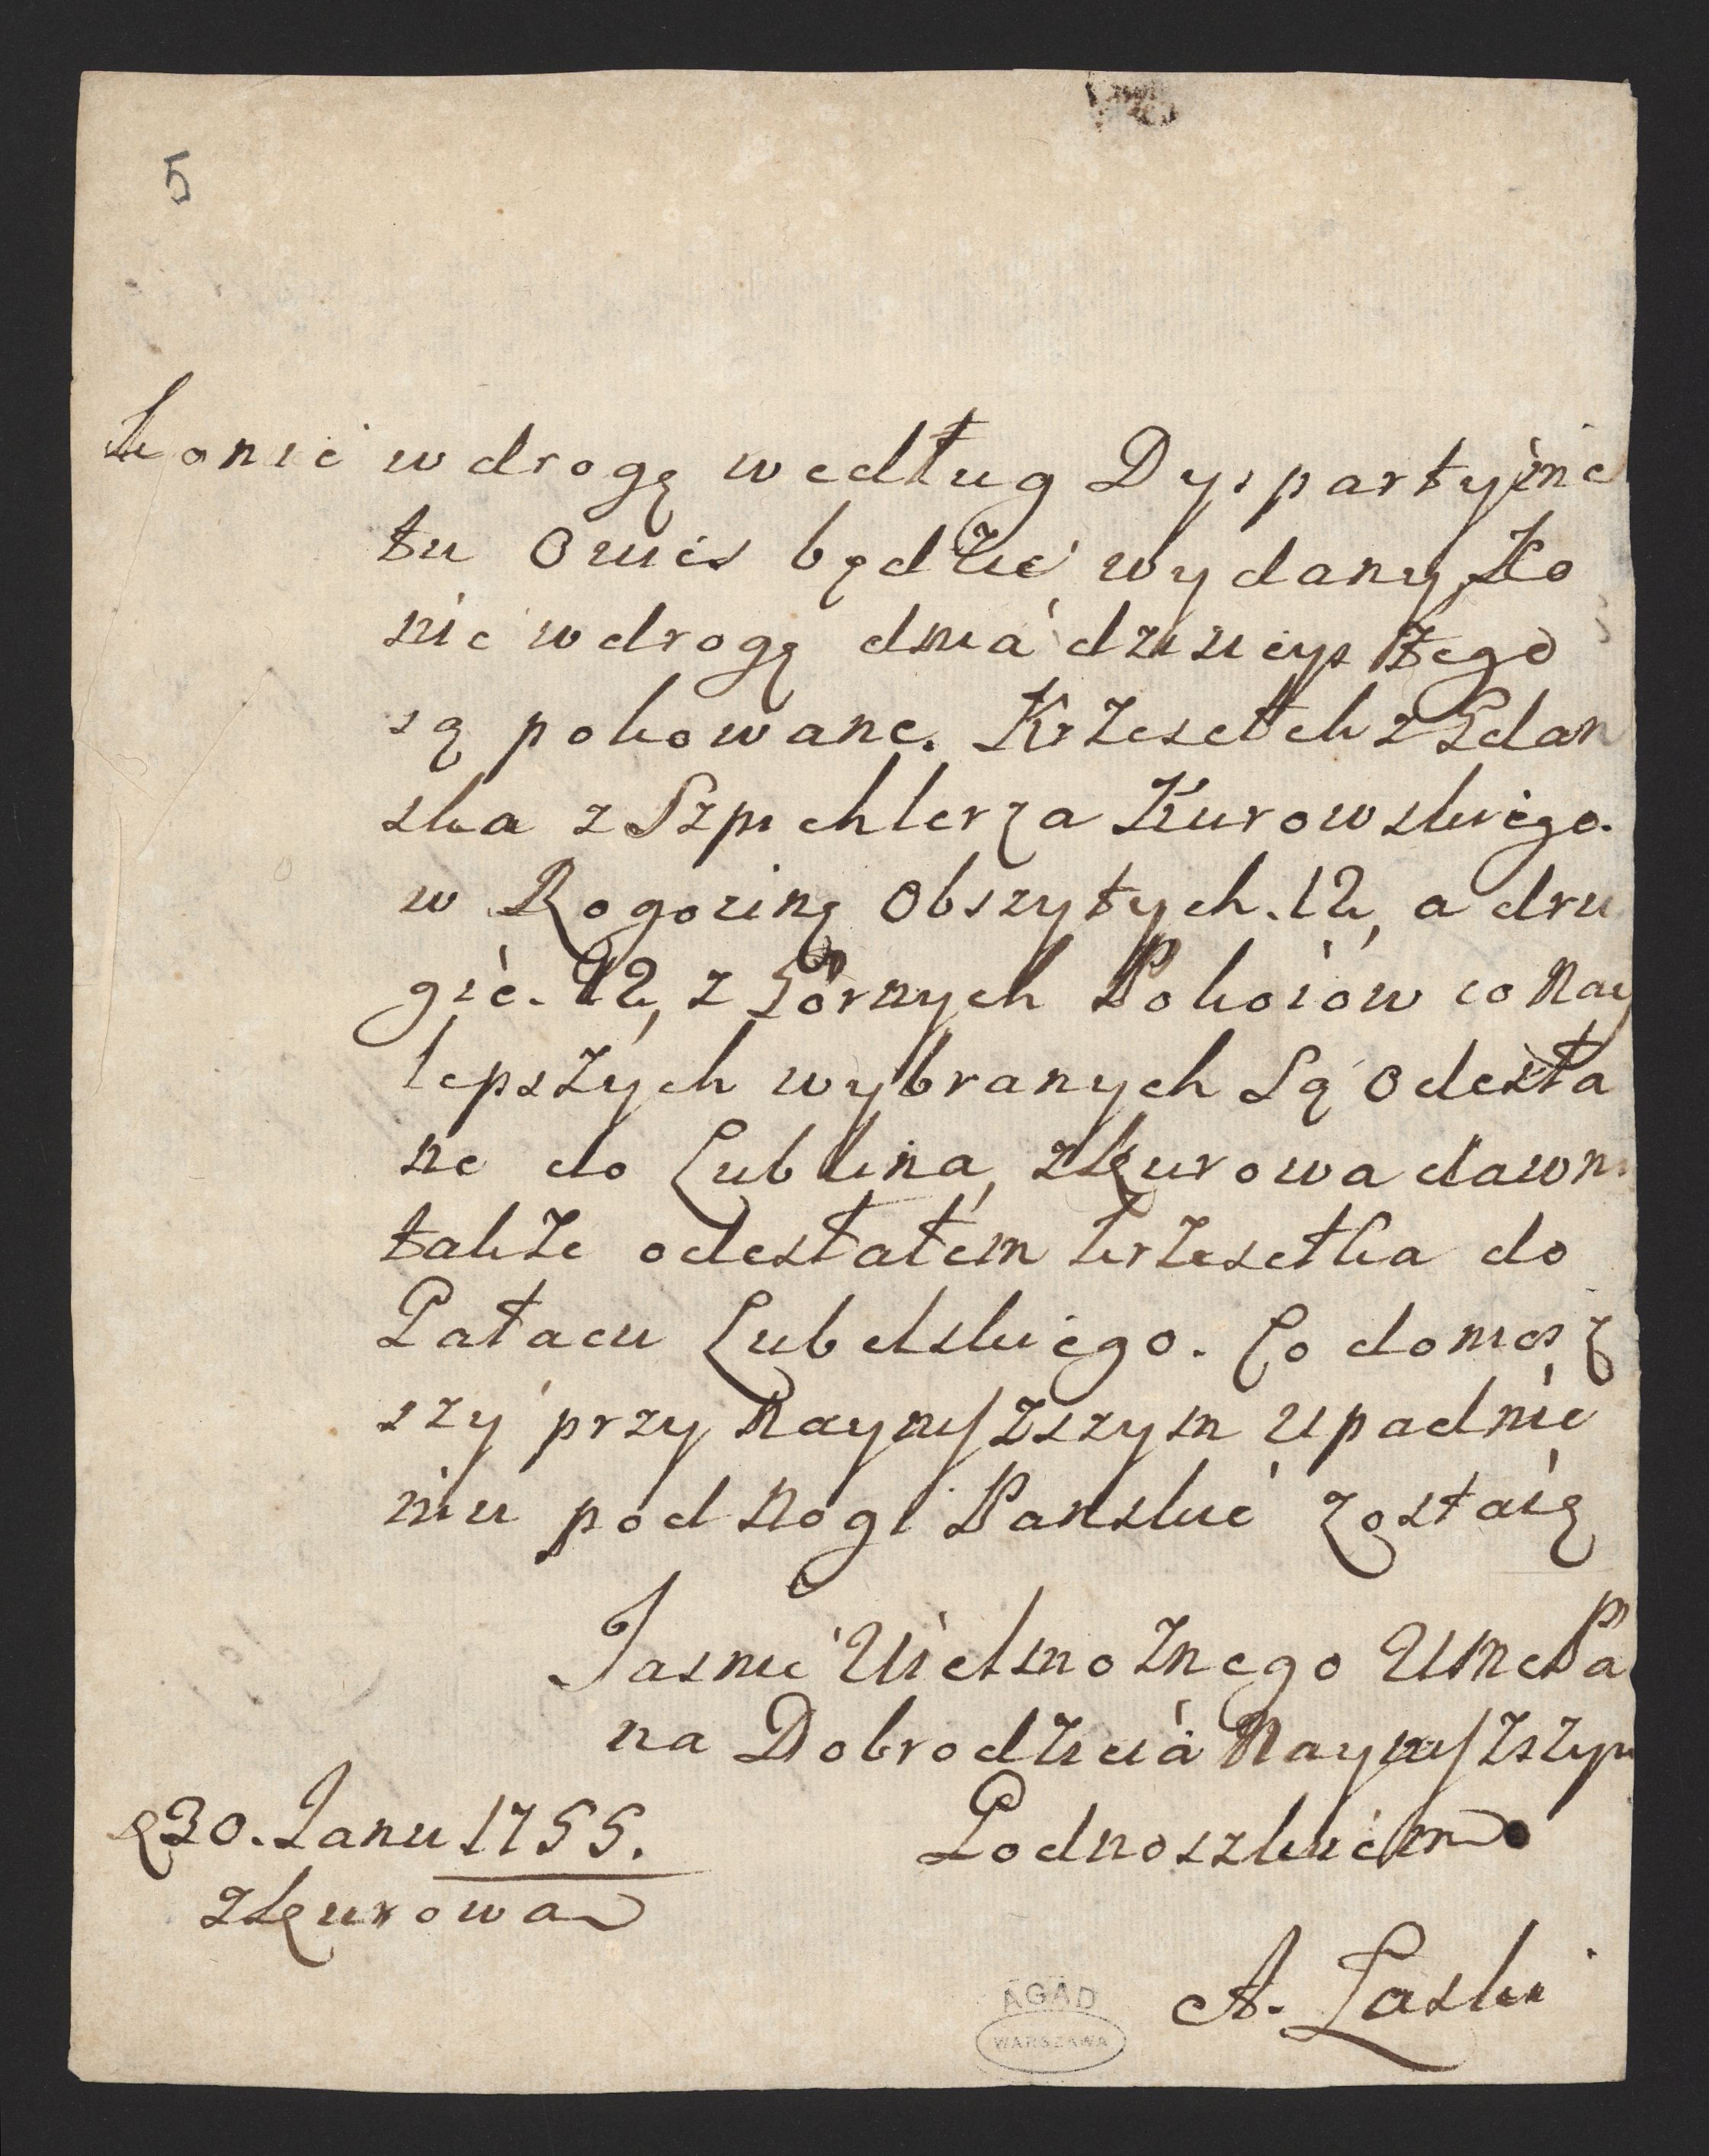 5
konie w drogę według Dyspartyme
tu Owies będźie wydany, Ko
nie w drogę dnia dzisieyszego
są pokowane. Krzesełek z Gdan
ska z Szpichlerza Kurowskiego.
w Rogozinę Obszytych. 12, a dru
gie. 12, z Górnych Pokoiow co Nay
lepszych wybranych Są Odesła
ne do Lublina, z Kurowa dawni
także odesłałem krzesełka do
Pałacu Lubelskiego. Co donios
szy przy Nayniższym Upadnie
niu pod Nogi Panskie zostaię
Jasnie Wielmożnego Ume Pa
na Dobrodzieia Nayniższym
Podnoszkiem
30. Janu 1755.
z Kurowa
A. Laski
AGAD
WARSZAWA